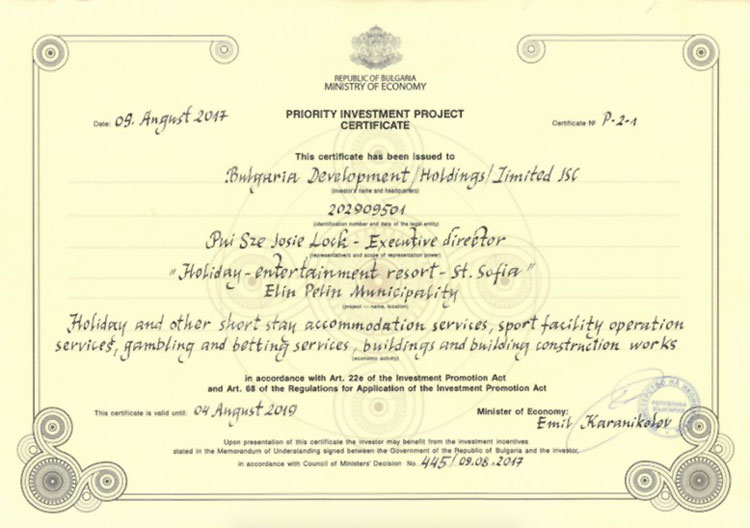 REPUBLIC OF BULGARIA
MINISTRY OF ECONOMY
Date: 09. August 2017
PRIORITY INVESTMENT PROJECT
CERTIFICATE
Certificate № P-2-1
This certificate has been issued to
Bulgaria Development /Holdings/ Limited JSC
(investor's name and headquarters)
202909501
(identification number and date of the legal entity)
Pui Sze Josie Lock - Executive director
(representative/s and scope of representation power)
"Holiday-entertainment resort-St. Sofia"
Elin Pelin Municipality
(project — name, location)
Holiday and other short stay accommodation services, sport facility operation
services, gambling and betting services, buildings and building construction works
(economic activity)
in accordance with Art. 22e of the Investment Promotion Act
and Art. 68 of the Regulations for Application of the Investment Promotion Act
This certificate is valid until: 04 August 2019
Minister of Economy:
Emil Karanikolov
РЕПУБЛИКА
БЪЛГАРИЯ
Upon presentation of this certificate the investor may benefit from the investment incentives
stated in the Memorandum of Understanding signed between the Government of the Republic of Bulgaria and the investor,
in accordance with Council of Ministers' Decision No. 445/09.08.2017